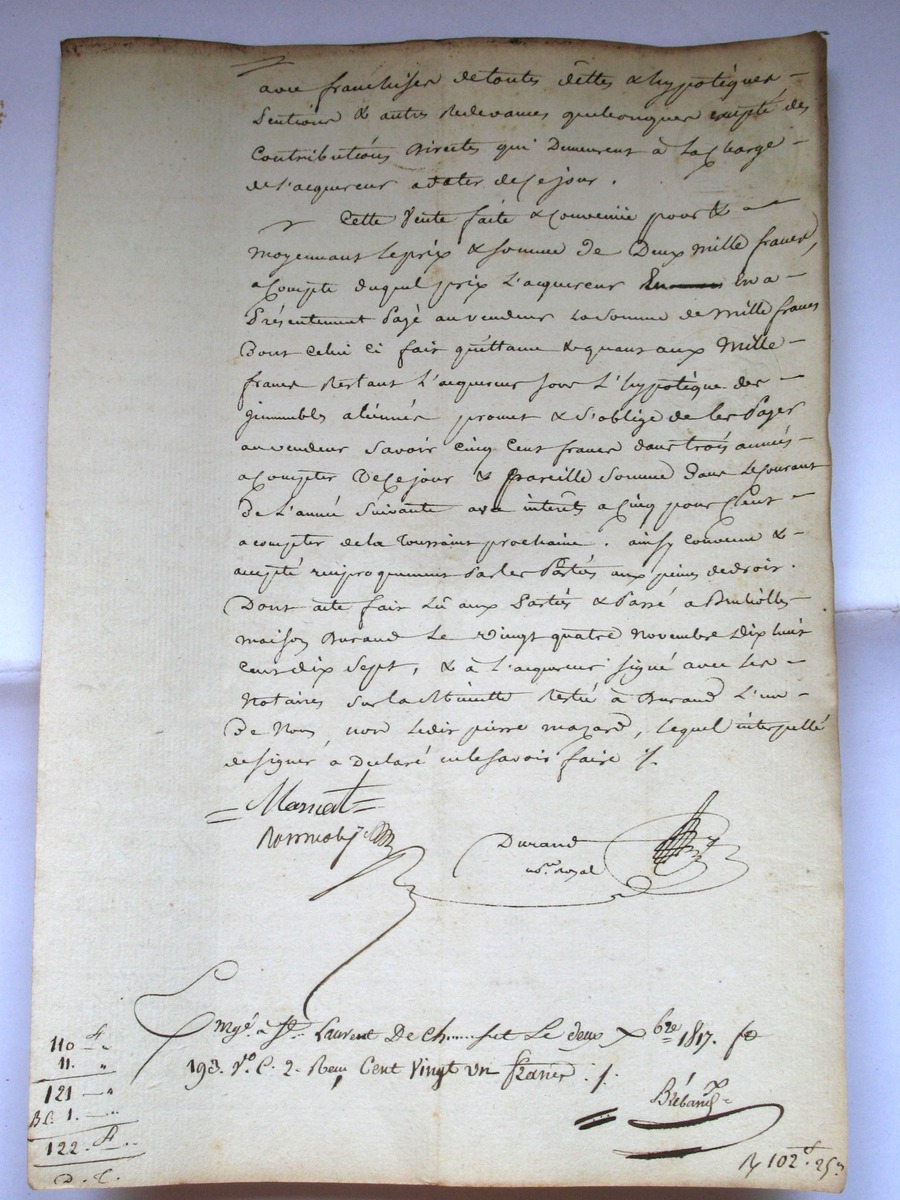 avec franchises de toutes dettes & hypotéques
Sentiörs & autres Redevances quelconques excepté des
Contributiöns Directes qui Demeurent à La Charge
de l'acquereur a dater de Ce jour.
Cette Vente faite & Convenüe pour &
moyennant Le prix & Somme de Deux mille francs,
a Compte duquel prix L'acquereur En a
Présentement Payé au vendeur La Somme de mille francs
Dont Celui Ci fait quittance & quant aux Mille
francs Restant L'acquereur Sous L'hypotéque des
immeubles aliennés promet & S'oblige de les Payer
au vendeur Savoir Cinq Cent francs dans trois années
a Compter de Ce jour & Pareille Somme dans Le Courant
De L'année Suivante avec interêts a Cinq pour Cent
a compter de la Toussaint prochaine. ainsy Convenu &
accepté réciproquement Par les Partiés aux peines de droit.
Dont acte fait Lû aux Partiés & Passé a
maison Durand Le Vingt quatre Novembre Dix huit
Cent Dix Sept, & à L'acquereur Signé avec Les
Notaires Sur La Minutte Restée à Durand L'un
De Nous, non Ledit pierre mazard, Lequel interpellé
de Signer à Déclaré ne le Savoir faire /.
Durand
no.re royal
à St. Laurent De Le deux Xbre 1817. fo
193. Vo. C. 2. Reçu Cent Vingt un francs ./.
110 f
11. "
121 "
1.
122. f
D. C.
102 f. 25